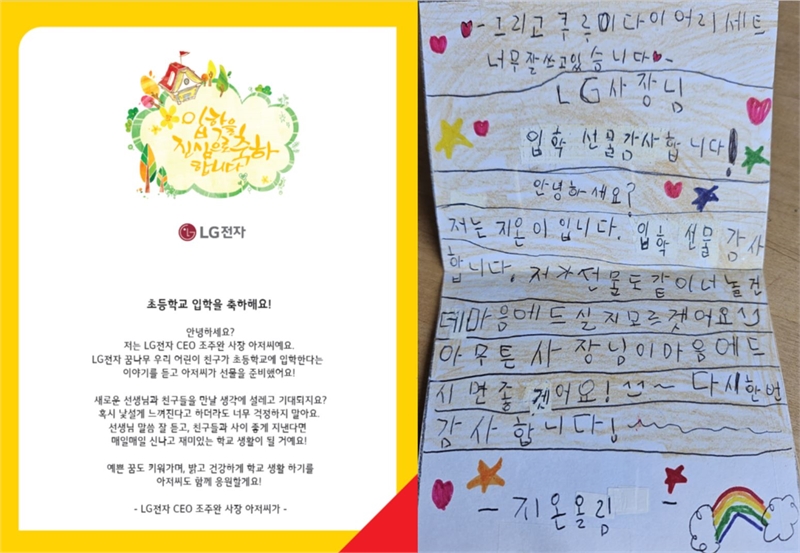 입학을
진심으로 축하
합니다
LG전자
초등학교 입학을 축하해요!
안녕하세요?
저는 LG전자 CEO 조주완 사장 아저씨예요.
LG전자 꿈나무 우리 어린이 친구가 초등학교에 입학한다는
이야기를 듣고 아저씨가 선물을 준비했어요!
새로운 선생님과 친구들을 만날 생각에 설레고 기대되지요?
혹시 낯설게 느껴진다고 하더라도 너무 걱정하지 말아요.
선생님 말씀 잘 듣고, 친구들과 사이 좋게 지낸다면
매일매일 신나고 재미있는 학교 생활이 될 거예요!
예쁜 꿈도 키워가며, 밝고 건강하게 학교 생활 하기를
아저씨도 함께 응원할게요!
- LG전자 CEO 조주완 사장 아저씨가 -
- 그리고 쿠루미다이어리세트
너무잘쓰고있습니다 -
LG사장님
입학 선물감사합니다!
안녕하세요?
저는 지온이입니다. 입학 선물 감사
합니다. 저가 선물도 같이너놀건
데마음에드실지모르겟어요^^
아무튼 사장님이마음에드
시면좋겟어요! ^^~ 다시한번
감사합니다!
- 지온올림 -